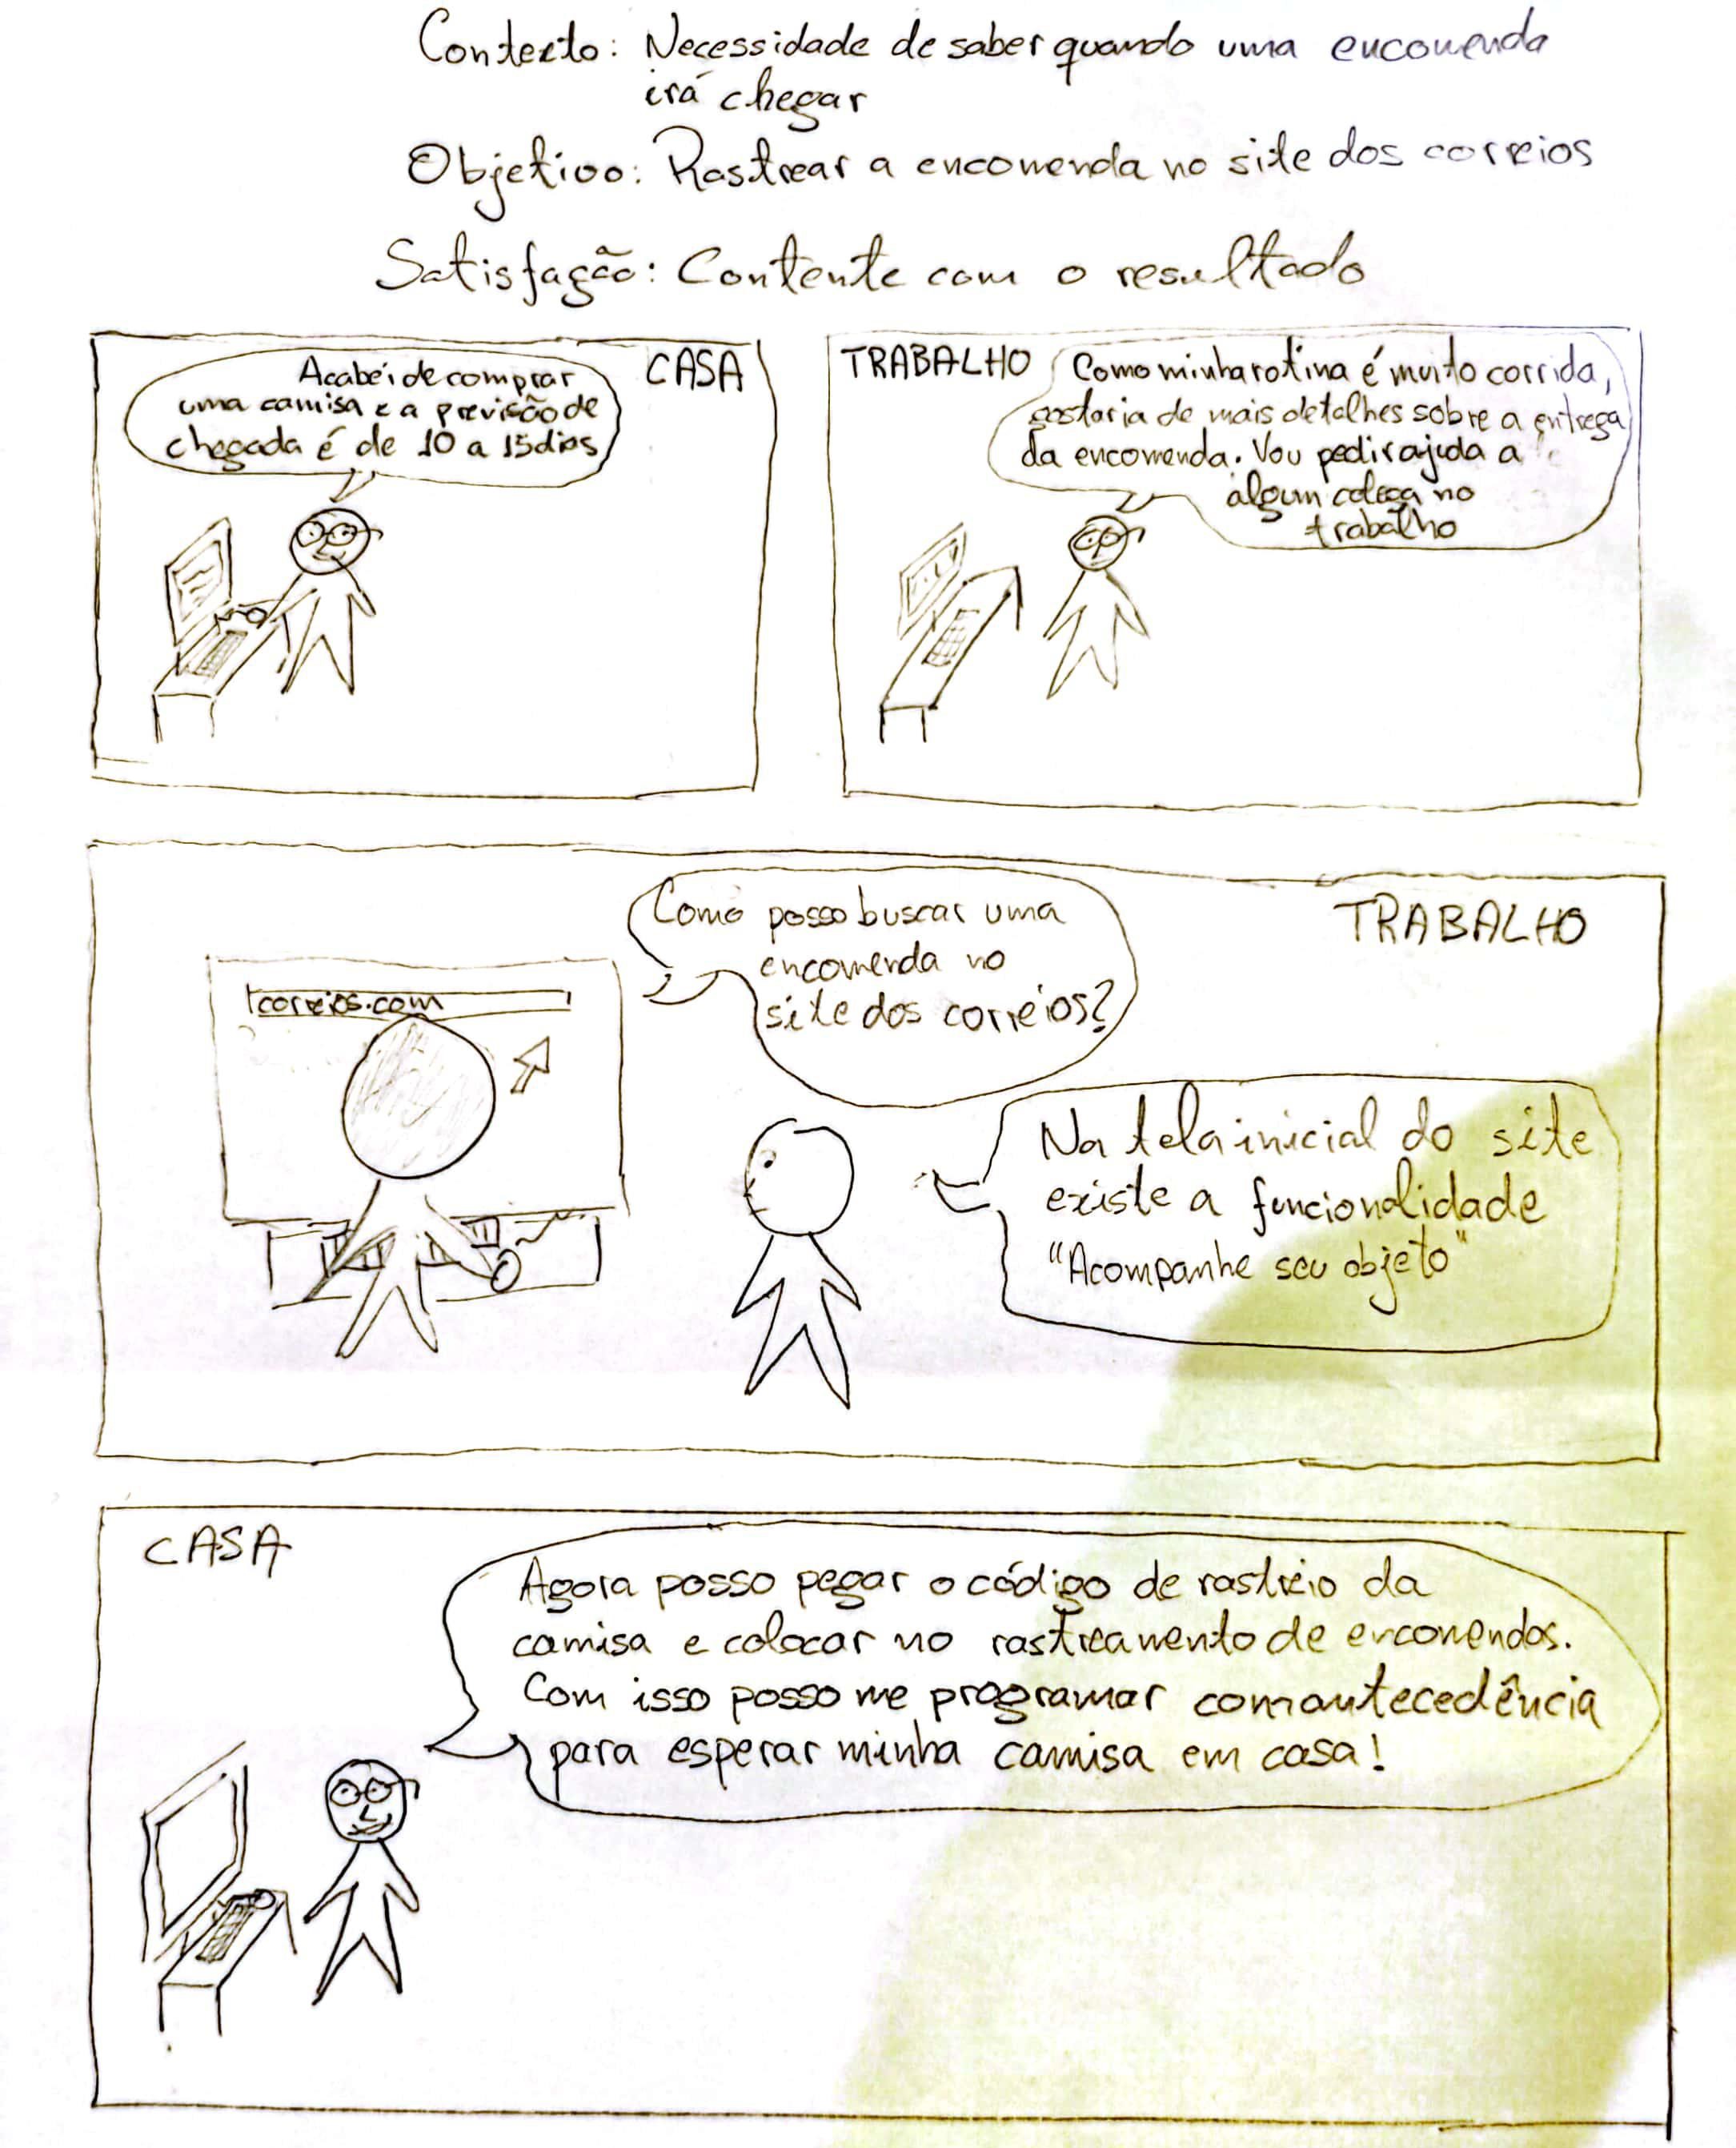 Contexto: Necessidade de saber quando uma encomenda
irá chegar
Objetivo: Rastrear a encomenda no site dos correios
Satisfação: Contente com o resultado
CASA
Acabei de comprar
uma camisa e a previsão de
chegada é de 10 a 15 dias
TRABALHO
Como minha rotina é muito corrida,
gostaria de mais detalhes sobre a entrega
da encomenda. Vou pedir ajuda a
algum colega no
trabalho
TRABALHO
Como posso buscar uma
encomenda no
site dos correios?
correios.com
Na tela inicial do site
existe a funcionalidade
"Acompanhe seu objeto"
CASA
Agora posso pegar o código de rastreio da
camisa e colocar no rastreamento de encomendas.
Com isso posso me programar com antecedência
para esperar minha camisa em casa!